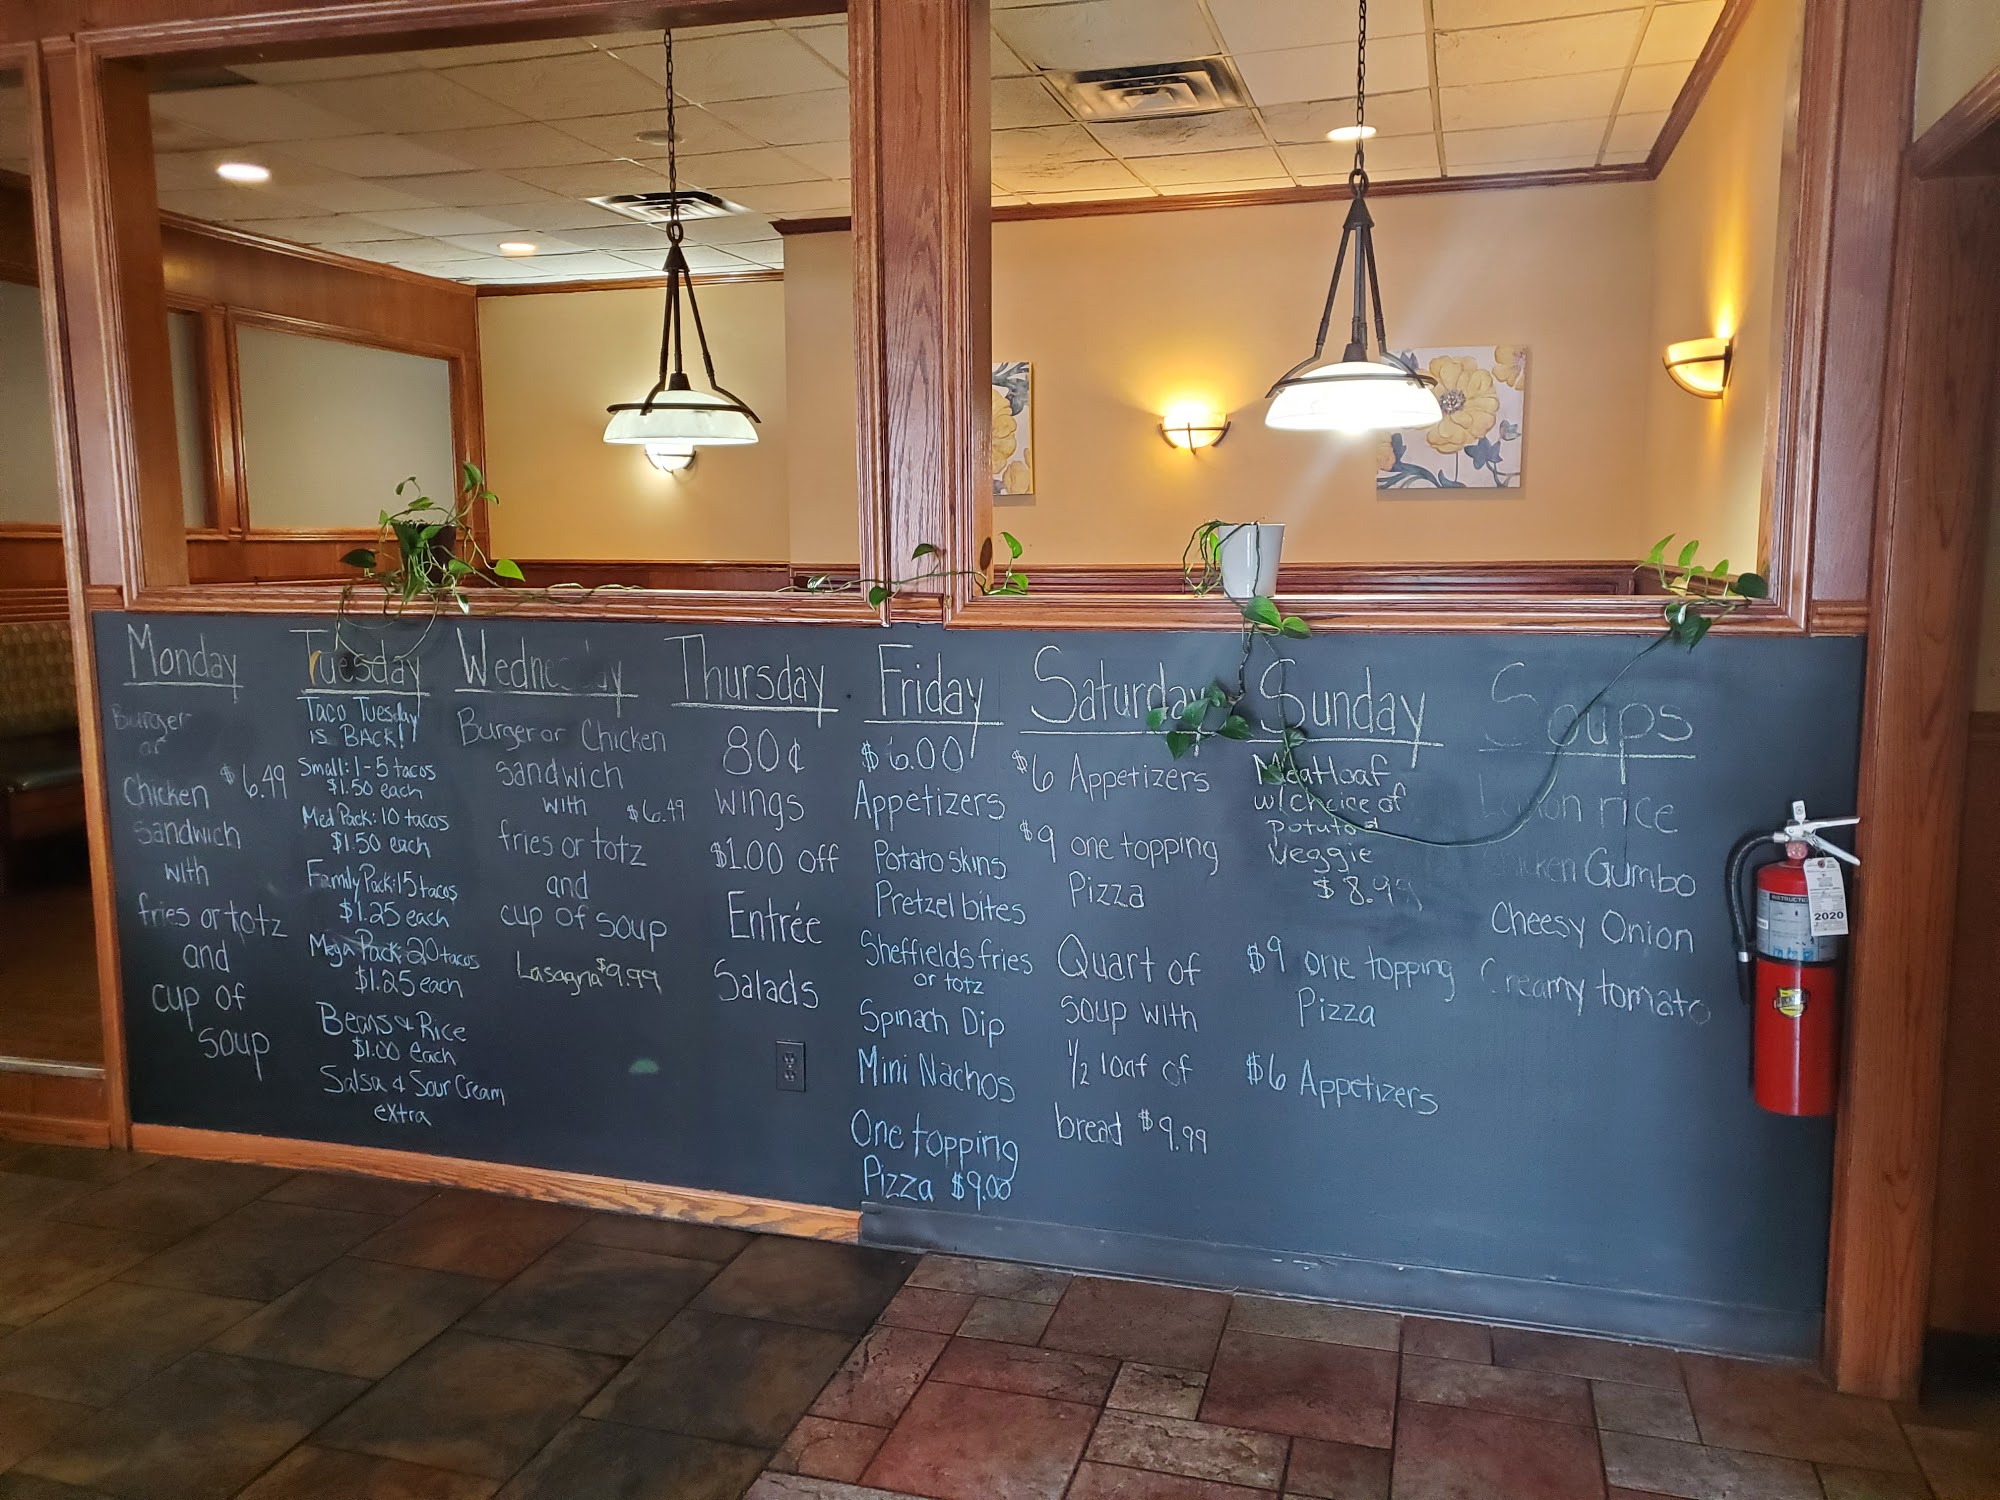 Monday
Burger
or
Chicken $6.49
sandwich
with
fries or totz
and
cup of
soup
Tuesday
Taco Tuesday
is BACK!
Small: 1-5 tacos
$1.50 each
Med Pack: 10 tacos
$1.50 each
Family Pack: 15 tacos
$1.25 each
Mega Pack: 20 tacos
$1.25 each
Beans & Rice
$1.00 each
Salsa & Sour Cream
extra
Wednesday
Burger or Chicken
sandwich
with $6.49
fries or totz
and
cup of soup
Lasagna $9.99
Thursday
80¢
wings
$1.00 off
Entrée
Salads
Friday
$6.00
Appetizers
Potato skins
Pretzel bites
Sheffields fries
or totz
Spinach Dip
Mini Nachos
One topping
Pizza $9.00
Saturday
$6 Appetizers
$9 one topping
Pizza
Quart of
soup with
1/2 loaf of
bread $9.99
Sunday
Meatloaf
w/choice of
potato &
Veggie
$8.99
$9 one topping
Pizza
$6 Appetizers
Soups
Lemon rice
Chicken Gumbo
Cheesy Onion
Creamy tomato
2020